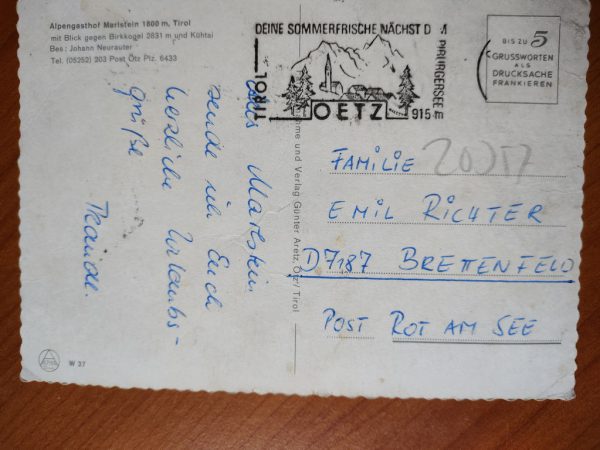 Alpengasthof Marlstein 1800 m, Tirol
mit Blick gegen Birkkogel 2831 m und Kühtai
Bes: Johann Neurauter
Tel. (05252) 203 Post Ötz Plz. 6433
DEINE SOMMERFRISCHE NÄCHST D
PIBURGERSEE
915 m
TIROL
OETZ
BIS ZU 5
GRUSSWORTEN
ALS
DRUCKSACHE
FRANKIEREN
Aus Marlstein
sende ich Euch
herzliche Urlaubs-
grüße
Traudl.
me und Verlag Günter Aretz, Ötz/Tirol
FAMILIE
EMIL RICHTER
D 7187 BRETTENFELD
POST ROT AM SEE
W 37